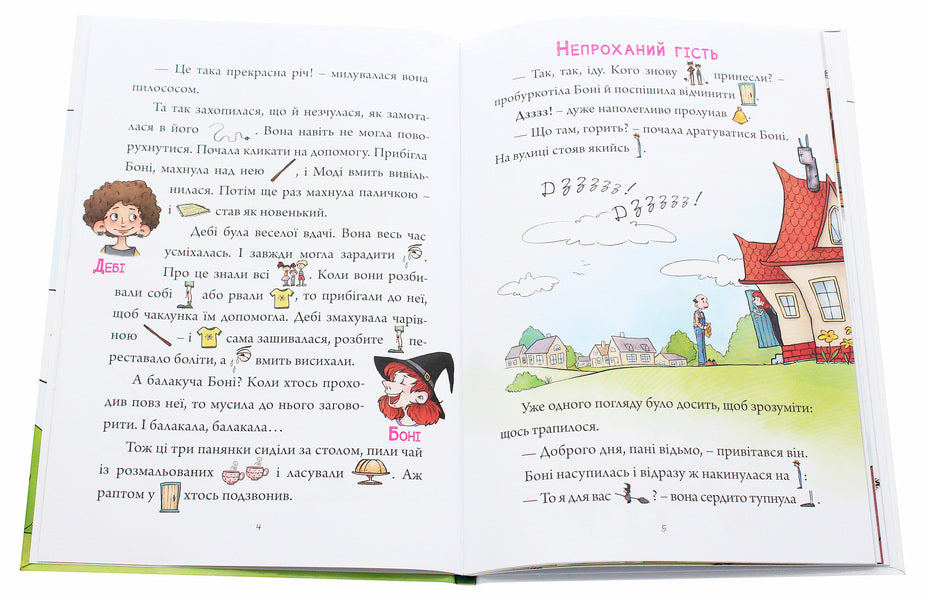 — Це така прекрасна річ! – милувалася вона
пилососом.
Та так захопилася, що й незчулася, як замота-
лася в його .  Вона навіть не могла пово-
рухнутися. Почала кликати на допомогу. Прибігла
Боні, махнула над нею , і Моді вмить вивіль-
нилася. Потім ще раз махнула паличкою –
і став як новенький.
Дебі була веселої вдачі. Вона весь час
усміхалася. І завжди могла зарадити .
Дебі
Про це знали всі . Коли вони розби-
вали собі або рвали , то прибігали до неї,
щоб чаклунка їм допомогла. Дебі змахувала чарів-
ною – і сама зашивалася, розбите пе-
реставало боліти, а вмить висихали.
А балакуча Боні? Коли хтось прохо-
див повз неї, то мусила до нього загово-
рити. І балакала, балакала…
Боні
Тож ці три панянки сиділи за столом, пили чай
із розмальованих і ласували . Аж
раптом у хтось подзвонив.
4
Непроханий гість
— Так, так, іду. Кого знову принесли? –
пробуркотіла Боні й поспішила відчинити .
Дзззз! – дуже наполегливо пролунав .
— Що там, горить? – почала дратуватися Боні.
На вулиці стояв якийсь .
Дзззззз!
Дзззззз!
Уже одного погляду було досить, щоб зрозуміти:
щось трапилося.
— Доброго дня, пані відьмо, – привітався він.
Боні насупилась і відразу ж накинулася на :
— То я для вас ? – вона сердито тупнула .
5